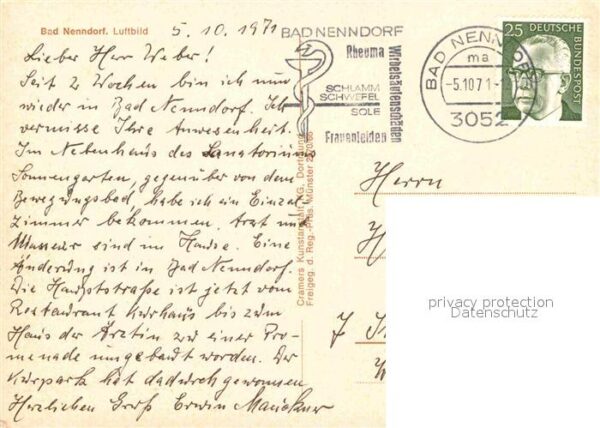 Bad Nenndorf. Luftbild
5. 10. 1971
Lieber Herr Weber!
Seit 2 Wochen bin ich nun
wieder in Bad Nenndorf. Ich
vermisse Ihre Anwesenheit.
Im Nebenhaus des Sanatoriums
Sonnengarten, gegenüber von dem
Bewegungsbad, habe ich ein Einzel
zimmer bekommen. Arzt und
Masseur sind im Hause. Eine
Änderung ist in Bad Nenndorf.
Die Hauptstraße ist jetzt vom
Restaurant Kurhaus bis zum
Haus der Ärztin zu einer Pro-
menade umgebaut worden. Der
Kurpark hat dadurch gewonnen
Herzlichen Gruß Erwin
Cramers Kunstanstalt KG. Dortmund
Freigeg. d. Reg.-Präs. Münster
BAD NENNDORF
Rheuma
Wirbelsäulenschäden
SCHLAMM
SCHWEFEL
SOLE
Frauenleiden
BAD NENNDORF
ma
-5.10.71-
3052
25 DEUTSCHE BUNDESPOST
Herrn
privacy protection
Datenschutz